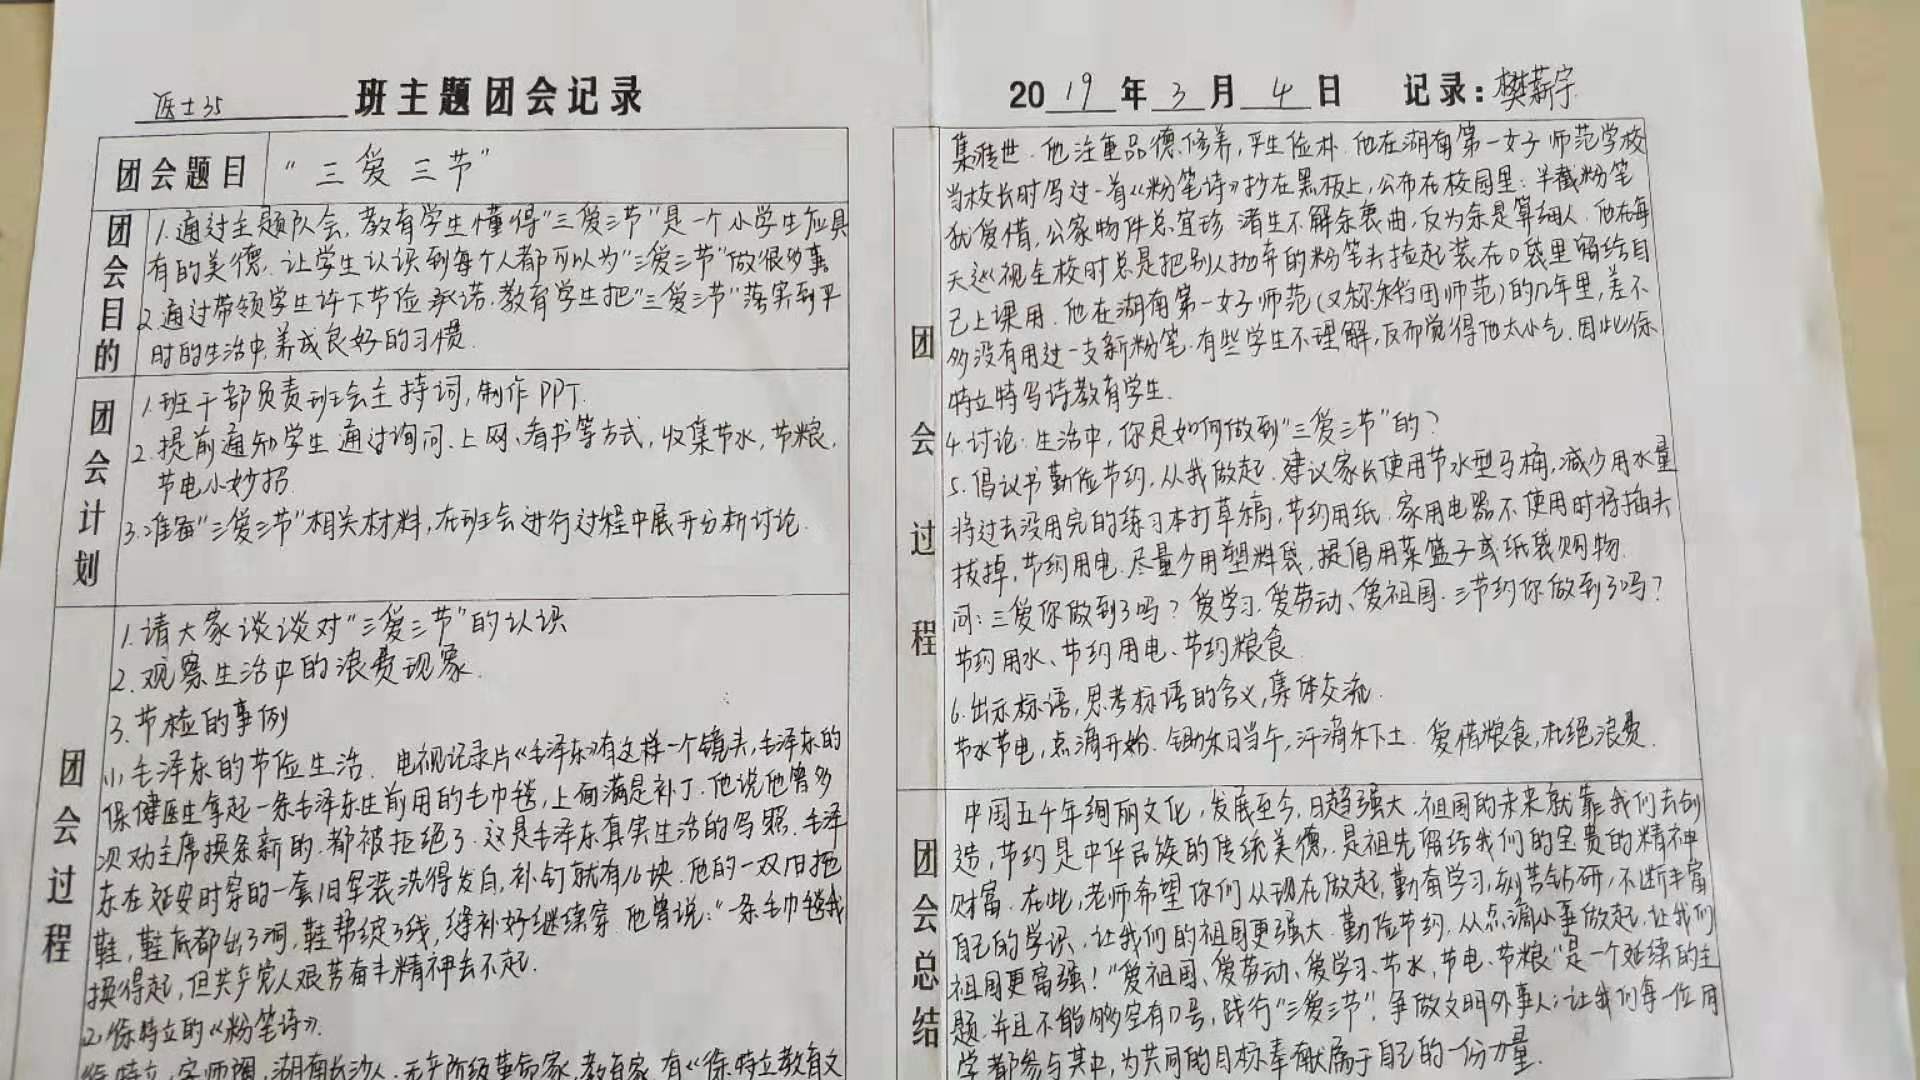 医士35 班主题团会记录
团会题目 “三爱三节”
团会目的
1.通过主题队会,教育学生懂得“三爱三节”是一个小学生应具
有的美德,让学生认识到每个人都可以为“三爱三节”做很多事
2.通过带领学生许下节俭承诺.教育学生把“三爱三节”落实到平
时的生活中,养成良好的习惯.
团会计划
1.班干部负责班会主持词,制作PPT.
2.提前通知学生通过询问、上网、看书等方式,收集节水,节粮,
节电小妙招
3.准备“三爱三节”相关材料,在班会进行过程中展开分析讨论.
团会过程
1.请大家谈谈对“三爱三节”的认识
2.观察生活中的浪费现象.
3.节检的事例
(1)毛泽东的节俭生活. 电视记录片《毛泽东》有这样一个镜头,毛泽东的
保健医生拿起一条毛泽东生前用的毛巾毯,上面满是补丁.他说他曾多
次劝主席换条新的.都被拒绝了.这是毛泽东真实生活的写照.毛泽
东在延安时穿的一套旧军装洗得发白,补钉就有16块.他的一双旧拖
鞋,鞋底都出了洞,鞋帮绽了线,缝补好继续穿.他曾说:“一条毛巾毯我
换得起,但共产党人艰苦奋斗精神丢不起.
2.徐特立的《粉笔诗》.
徐特立,字师陶,湖南长沙人.无产阶级革命家,教育家.有《徐特立教育文
2019年3月4日 记录:樊薪宇
团会过程
集》传世.他注重品德修养,平生俭朴.他在湖南第一女子师范学校
当校长时写过一首《粉笔诗》抄在黑板上,公布在校园里:半截粉笔
犹爱惜,公家物件总宜珍.诸生不解余衷曲,反为余是算细人.他在每
天巡视全校时总是把别人抛弃的粉笔头捡起装在口袋里留给自
己上课用.他在湖南第一女子师范(又称稻田师范)的几年里,差不
多没有用过一支新粉笔.有些学生不理解,反而觉得他太小气.因此徐
特立特写诗教育学生.
4.讨论:生活中,你是如何做到“三爱三节”的?
5.倡议书勤俭节约,从我做起.建议家长使用节水型马桶,减少用水量
将过去没用完的练习本打草稿,节约用纸.家用电器不使用时将插头
拔掉,节约用电.尽量少用塑料袋,提倡用菜篮子或纸袋购物.
问:三爱你做到了吗?爱学习、爱劳动、爱祖国.三节约你做到了吗?
节约用水、节约用电、节约粮食.
6.出示标语,思考标语的含义,集体交流.
节水节电,点滴开始.锄禾日当午,汗滴禾下土.爱惜粮食,杜绝浪费.
团会总结
中国五千年绚丽文化,发展至今,日趋强大.祖国的未来就靠我们去创
造,节约是中华民族的传统美德,是祖先留给我们的宝贵的精神
财富.在此,老师希望你们从现在做起,勤奋学习,刻苦钻研,不断丰富
自己的学识,让我们的祖国更强大.勤俭节约,从点滴小事做起,让我们
祖国更富强!“爱祖国、爱劳动、爱学习、节水,节电、节粮”是一个延续的主
题.并且不能够空有口号,践行“三爱三节”!争做文明外事人;让我们每一位同
学都参与其中,为共同的目标奉献属于自己的一份力量.